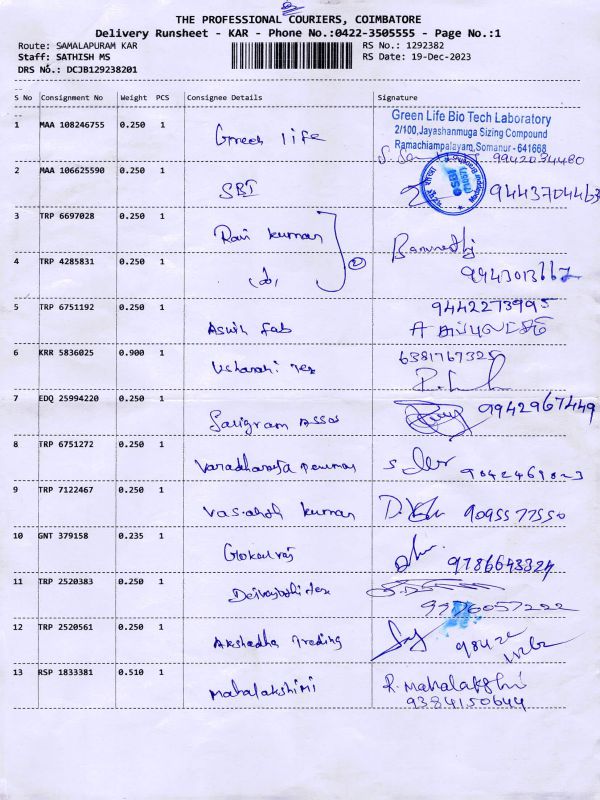 THE PROFESSIONAL COURIERS, COIMBATORE
Delivery Runsheet - KAR - Phone No.:0422-3505555 - Page No.:1
Route: SAMALAPURAM KAR RS No.: 1292382
Staff: SATHISH MS RS Date: 19-Dec-2023
DRS No.: DCJB129238201
S No Consignment No Weight PCS Consignee Details Signature
Green Life Bio Tech Laboratory
2/100, Jayashanmuga Sizing Compound
Ramachiampalayam, Somanur - 641668
1 MAA 108246755 0.250 1 Green life 9942034480
2 MAA 106625590 0.250 1 SBI SBI 9443704463
3 TRP 6697028 0.250 1 Ravi kumar
4 TRP 4285831 0.250 1 2 9943013667
5 TRP 6751192 0.250 1 Aswin fab 9442273995
6 KRR 5836025 0.900 1 Usharani Tex 6381767325
7 EDQ 25994220 0.250 1 9942967449
8 TRP 6751272 0.250 1 Varadharaja Perumal
9 TRP 7122467 0.250 1 Vasanth kumar 9095577550
10 GNT 379158 0.235 1 Gokulraj 9786643324
11 TRP 2520383 0.250 1
12 TRP 2520561 0.250 1 Akshadha Treding
13 RSP 1833381 0.510 1 Mahalakshimi R. Mahalakshmi
9384150644